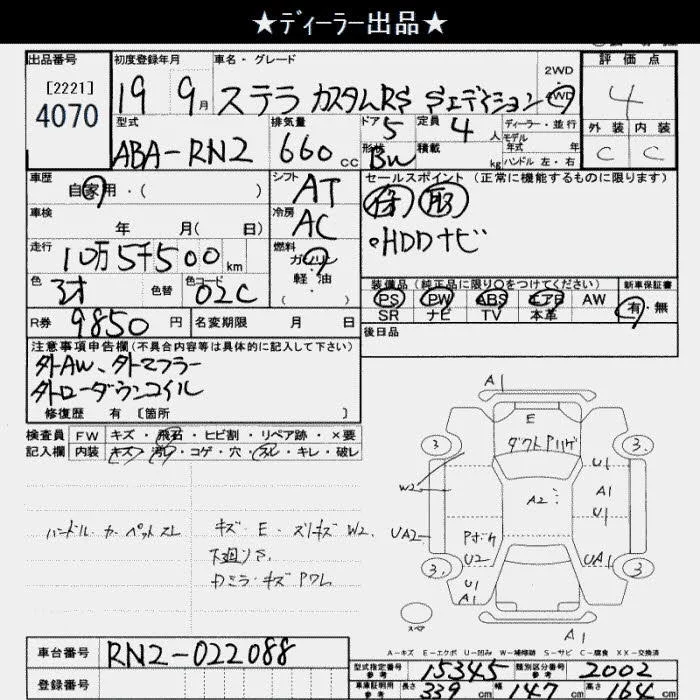 ★ディーラー出品★
出品番号 初度登録年月 車名・グレード 評価点
[2221]
4070
19 9月 ステラ カスタムRS Sエディション 2WD 4WD 4
型式 排気量 ドア 定員 ディーラー・並行 外装 内装
ABA-RN2 660cc 5 4人 モデル年式 年式 C C
形状 積載 kg ハンドル 左・右
BW
車歴 シフト セールスポイント(正常に機能するものに限ります)
自家用・( ) AT
車検 冷房
年 月( 日) AC ・HDDナビ
走行 燃料
10万5千500km ガソリン・軽油( )
色 色替 色コード 装備品(純正品に限り○をつけてください) 新車保証書
02C PS PW ABS エアB AW 有・無
SR ナビ TV 本革
R券 9850円 名変期限 月 日 後日品
注意事項申告欄(不具合内容等は具体的に記入して下さい)
外AW、外マフラー
外ローダウンコイル
修復歴 有 [箇所 ]
検査員 FW キズ・飛石・ヒビ割・リペア跡・×要
記入欄 内装 キズ・汚れ・コゲ・穴・スレ・キレ・破レ
ハンドル・カーペットスレ キズ・E・スリキズW2.
下廻りS.
A1
E
3 3.
U1
W2 A2 A1
U1
UA2
U2 UA1
3. 3
U1
A1
スペア A1
A-キズ E-エクボ U-凹み W-補修跡 S-サビ C-腐食 XX-交換済
車台番号 RN2-022088
登録番号
型式指定番号 参考 15345 類別区分番号 参考 2002
車庫証明用 参考 長さ 339cm 幅 147cm 高さ 164cm